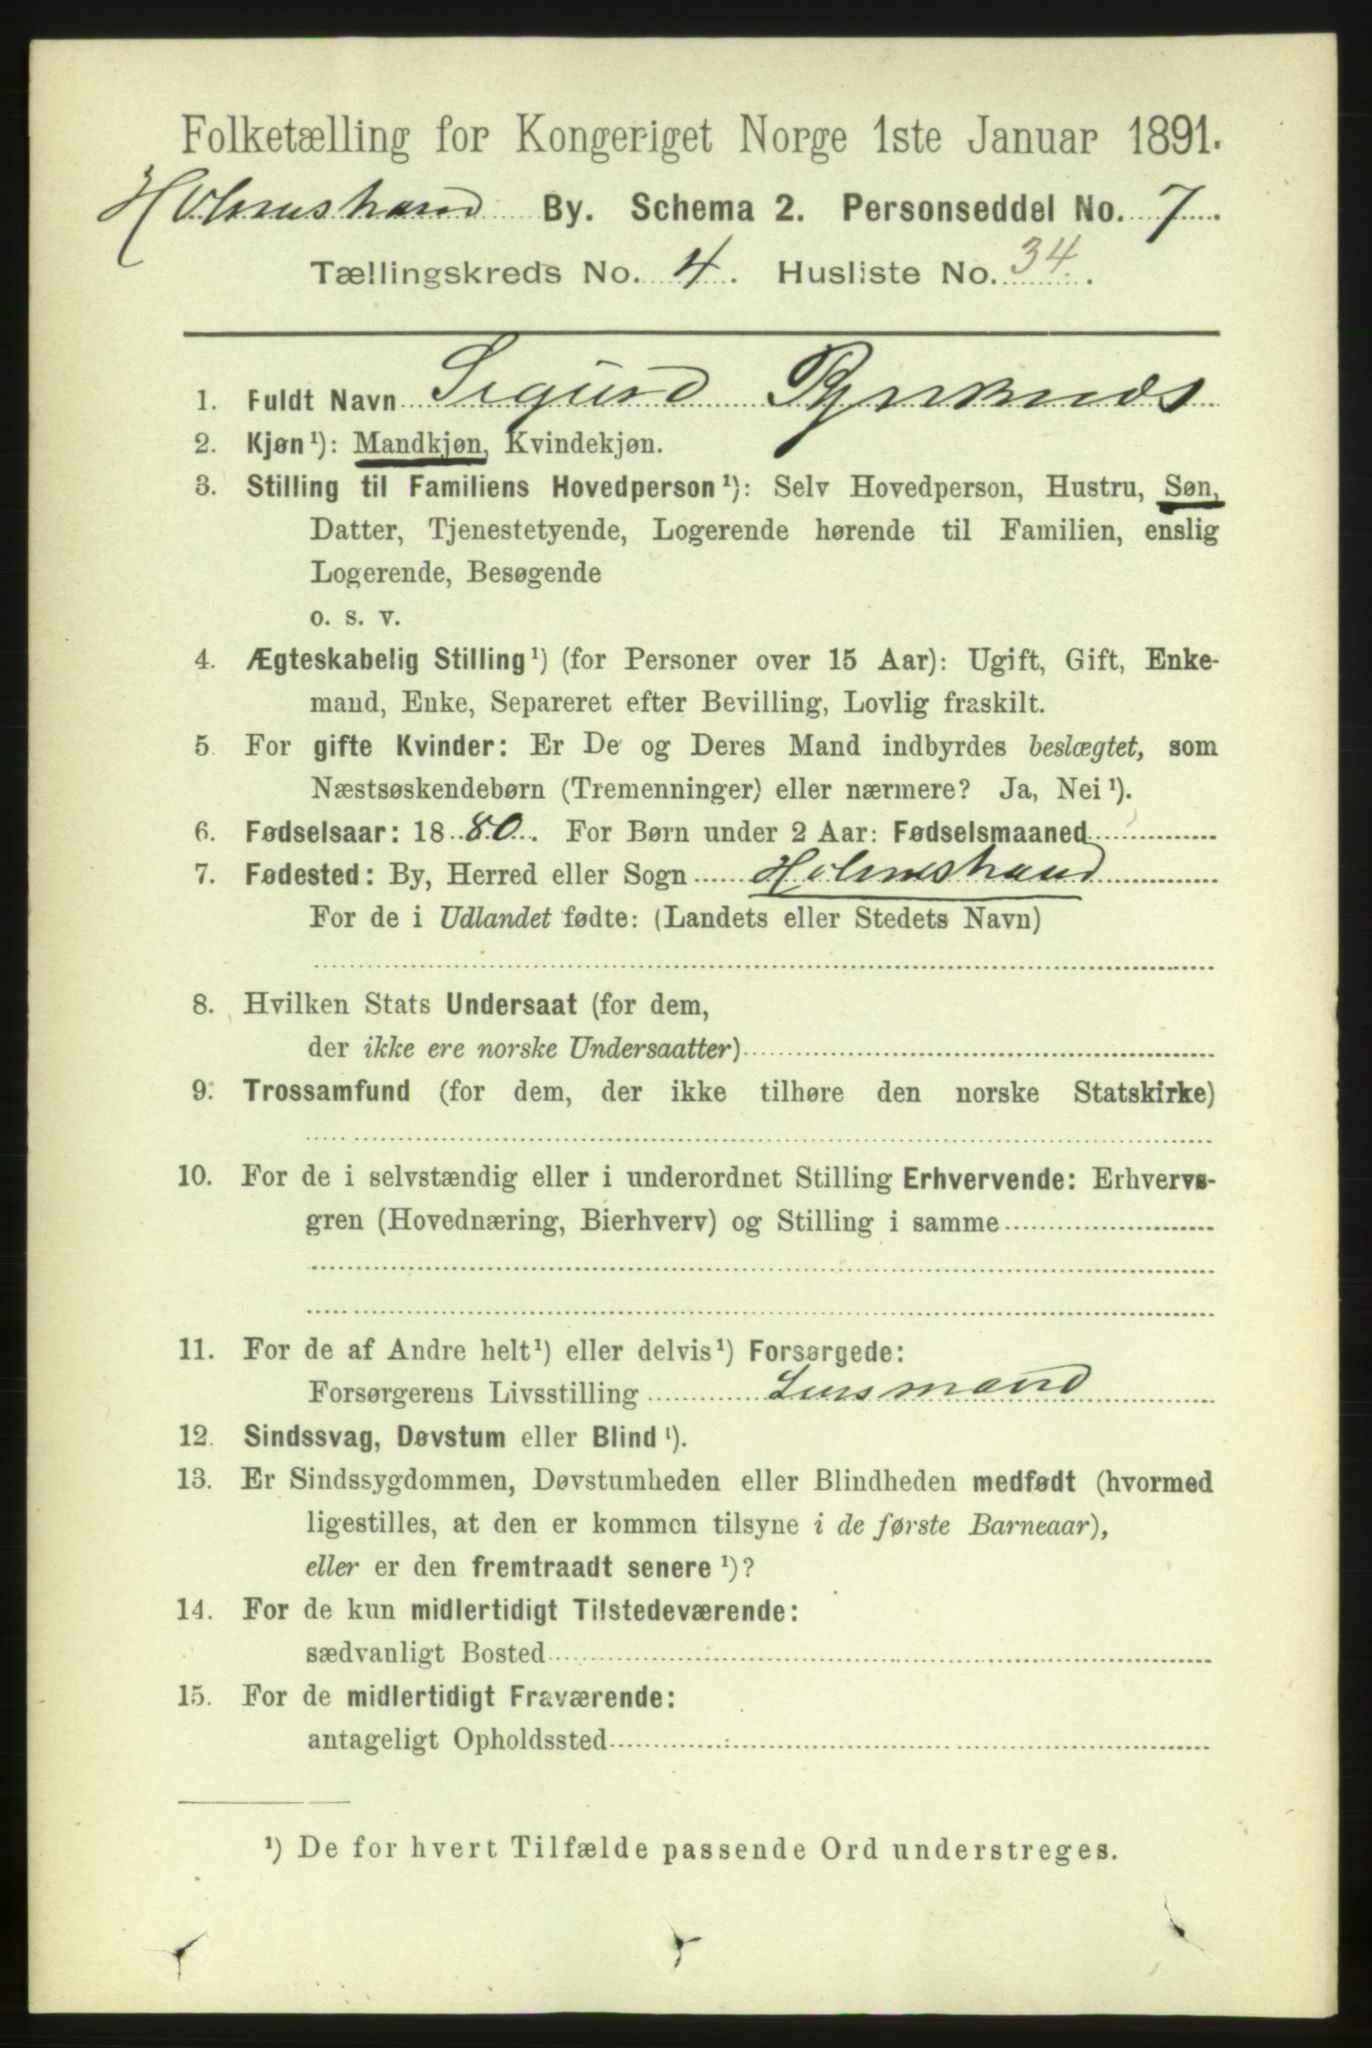 Folketælling for Kongeriget Norge 1ste Januar 1891.
Holmestrand By. Schema 2. Personseddel No. 7.
Tællingskreds No. 4. Husliste No. 34.
1. Fuldt Navn Sigurd
2. Kjøn¹): Mandkjøn, Kvindekjøn.
3. Stilling til Familiens Hovedperson¹): Selv Hovedperson, Hustru, Søn,
Datter, Tjenestetyende, Logerende hørende til Familien, enslig
Logerende, Besøgende
o. s. v.
4. Ægteskabelig Stilling¹) (for Personer over 15 Aar): Ugift, Gift, Enke-
mand, Enke, Separeret efter Bevilling, Lovlig fraskilt.
5. For gifte Kvinder: Er De og Deres Mand indbyrdes beslægtet, som
Næstsøskendebørn (Tremenninger) eller nærmere? Ja, Nei¹).
6. Fødselsaar: 1880. For Børn under 2 Aar: Fødselsmaaned
7. Fødested: By, Herred eller Sogn Holmestrand
For de i Udlandet fødte: (Landets eller Stedets Navn)
8. Hvilken Stats Undersaat (for dem,
der ikke ere norske Undersaatter)
9. Trossamfund (for dem, der ikke tilhøre den norske Statskirke)
10. For de i selvstændig eller i underordnet Stilling Erhvervende: Erhvervs-
gren (Hovednæring, Bierhverv) og Stilling i samme
11. For de af Andre helt¹) eller delvis¹) Forsørgede:
Forsørgerens Livsstilling Lensmand
12. Sindssvag, Døvstum eller Blind¹).
13. Er Sindssygdommen, Døvstumheden eller Blindheden medfødt (hvormed
ligestilles, at den er kommen tilsyne i de første Barneaar),
eller er den fremtraadt senere¹)?
14. For de kun midlertidigt Tilstedeværende:
sædvanligt Bosted
15. For de midlertidigt Fraværende:
antageligt Opholdssted
¹) De for hvert Tilfælde passende Ord understreges.